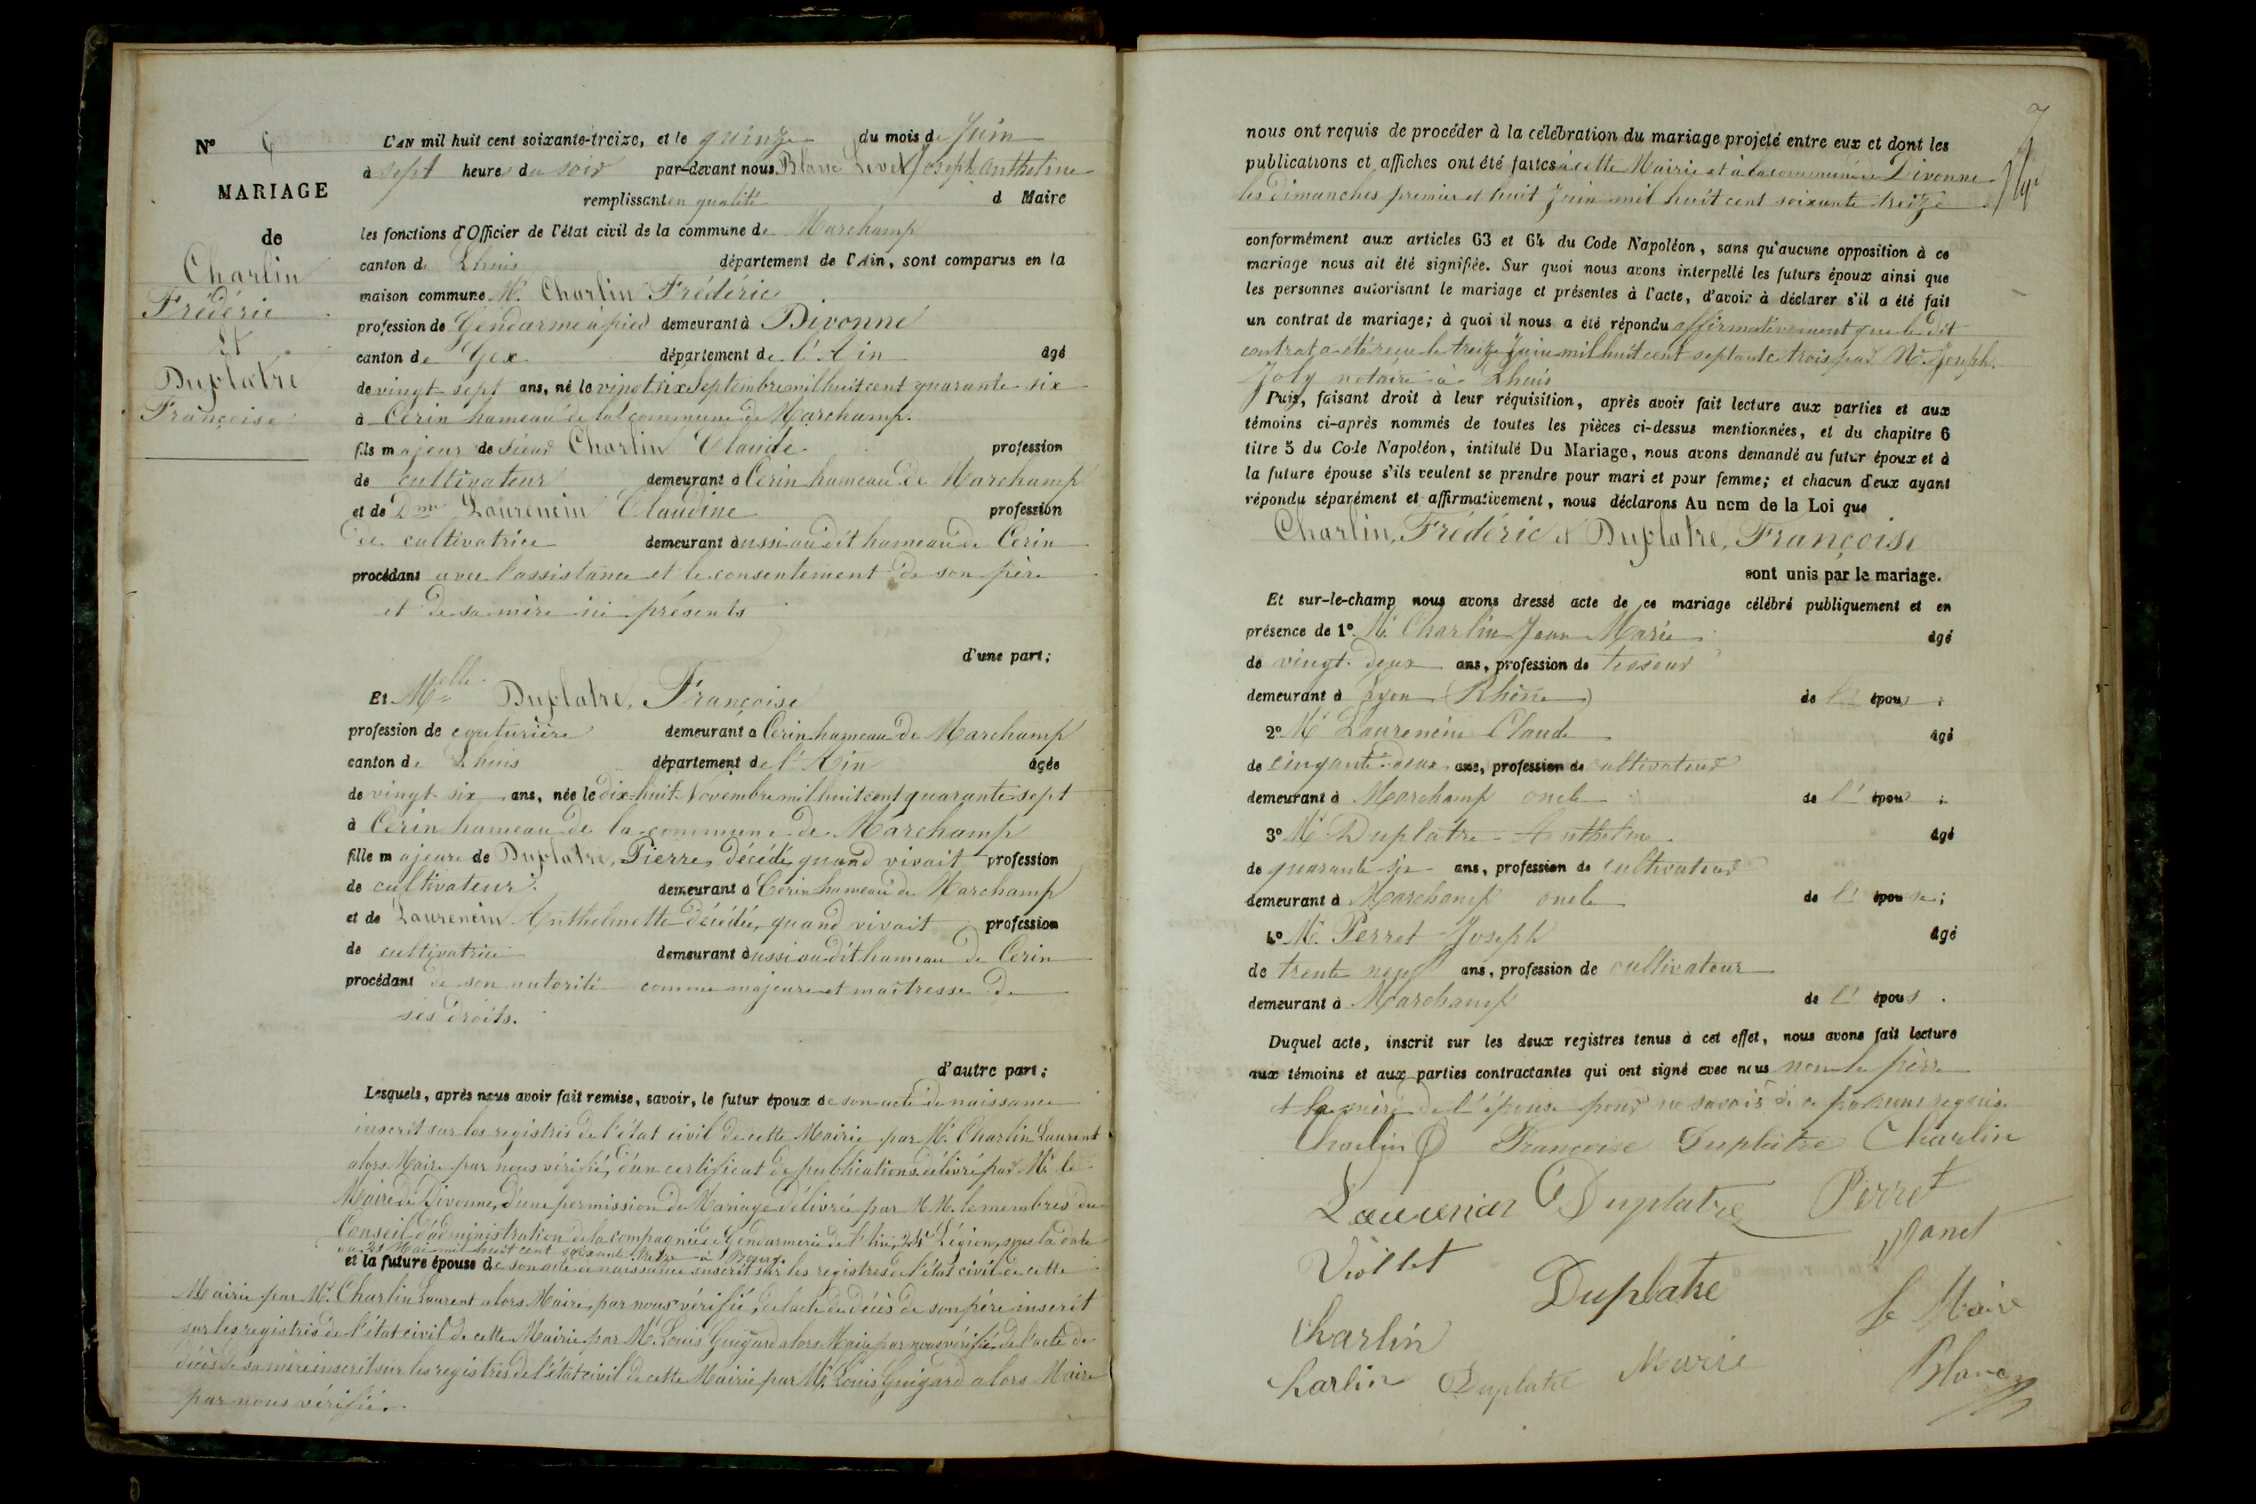 N° 6
MARIAGE
de
Charlin
Frédéric
Et
Duplatre
Françoise
L'AN mil huit cent soixante-treize, et le quinze du mois de Juin
à sept heures du soir par-devant nous Blanc Livet Joseph Anthelme
remplissant en qualité d Maire
les fonctions d'Officier de l'état civil de la commune de Marchamp
canton de Lhuis département de l'Ain, sont comparus en la
maison commune Mr. Charlin Frédéric
profession de Gendarme à pied demeurant à Divonne
canton de Gex département de l'Ain âgé
de vingt sept ans, né le vingt six Septembre mil huit cent quarante six
à Cerin hameau de la commune de Marchamp.
fils majeur de sieur Charlin Claude profession
de cultivateur demeurant à Cerin hameau de Marchamp
et de Dme Laurencin Claudine profession
de cultivatrice demeurant aussi au dit hameau de Cerin
procédant avec l'assistance et le consentement de son père
et de sa mère ici présents
d'une part;
Et Melle Duplatre, Françoise
profession de couturière demeurant à Cerin hameau de Marchamp
canton de Lhuis département de l'Ain âgée
de vingt six ans, née le dix-huit Novembre mil huit cent quarante sept
à Cerin hameau de la commune de Marchamp
fille majeure de Duplatre, Pierre, décédé, quand vivait profession
de cultivateur demeurant à Cerin hameau de Marchamp
et de Laurencin Anthelmette décédée, quand vivait profession
de cultivatrice demeurant aussi au dit hameau de Cerin
procédant de son autorité comme majeure et maîtresse de
ses droits.
d'autre part;
Lesquels, après nous avoir fait remise, savoir, le futur époux de son acte de naissance
inscrit sur les registres de l'état civil de cette Mairie par Mr. Charlin Laurent
alors Maire par nous vérifié, d'un certificat de publications délivré par Mr. le
Maire de Divonne, d'une permission de Mariage délivrée par M.M. le membres du
Conseil d'administration de la compagnie de Gendarmerie de l'Ain, Légion, sous la date
du 21 Mai mil huit cent soixante treize à Bourg.
et la future épouse de son acte de naissance inscrit sur les registres de l'état civil de cette
Mairie par Mr. Charlin Laurent alors Maire, par nous vérifié, de l'acte de décès de son père inscrit
sur les registres de l'état civil de cette Mairie par Mr. Louis Guigard alors Maire par nous vérifié, de l'acte de
décès de sa mère inscrit sur les registres de l'état civil de cette Mairie par Mr. Louis Guigard alors Maire
par nous vérifié.
7
nous ont requis de procéder à la célébration du mariage projeté entre eux et dont les
publications et affiches ont été faites à cette Mairie et à la commune de Divonne
les dimanches premier et huit Juin mil huit cent soixante treize
conformément aux articles 63 et 64 du Code Napoléon, sans qu'aucune opposition à ce
mariage nous ait été signifiée. Sur quoi nous avons interpellé les futurs époux ainsi que
les personnes autorisant le mariage et présentes à l'acte, d'avoir à déclarer s'il a été fait
un contrat de mariage; à quoi il nous a été répondu affirmativement que le dit
contrat a été reçu le treize Juin mil huit cent septante trois par Me. Joseph
Joly notaire à Lhuis
Puis, faisant droit à leur réquisition, après avoir fait lecture aux parties et aux
témoins ci-après nommés de toutes les pièces ci-dessus mentionnées, et du chapitre 6
titre 5 du Code Napoléon, intitulé Du Mariage, nous avons demandé au futur époux et à
la future épouse s'ils veulent se prendre pour mari et pour femme; et chacun d'eux ayant
répondu séparément et affirmativement, nous déclarons Au nom de la Loi que
Charlin, Frédéric et Duplatre, Françoise
sont unis par le mariage.
Et sur-le-champ nous avons dressé acte de ce mariage célébré publiquement et en
présence de 1° Mr. Charlin Jean Marie âgé
de vingt-deux ans, profession de tisseur
demeurant à Lyon (Rhône) de l' époux ;
2° Mr Laurencin Claude âgé
de cinquante-deux ans, profession de cultivateur
demeurant à Marchamp oncle de l' époux ;
3° Mr Duplatre Anthelme âgé
de quarante-six ans, profession de cultivateur
demeurant à Marchamp oncle de l' épouse ;
4° Mr. Perret Joseph âgé
de trente neuf ans, profession de cultivateur
demeurant à Marchamp de l' époux .
Duquel acte, inscrit sur les deux registres tenus à cet effet, nous avons fait lecture
aux témoins et aux parties contractantes qui ont signé avec nous non le père
et la mère de l'épouse pour ne savoir de ce requis
Charlin Françoise Duplatre Charlin
Laurencin Duplatre Perret
Viollet Janet
Duplatre
Charlin Le Maire
Charlin Duplatre Marie Blanc